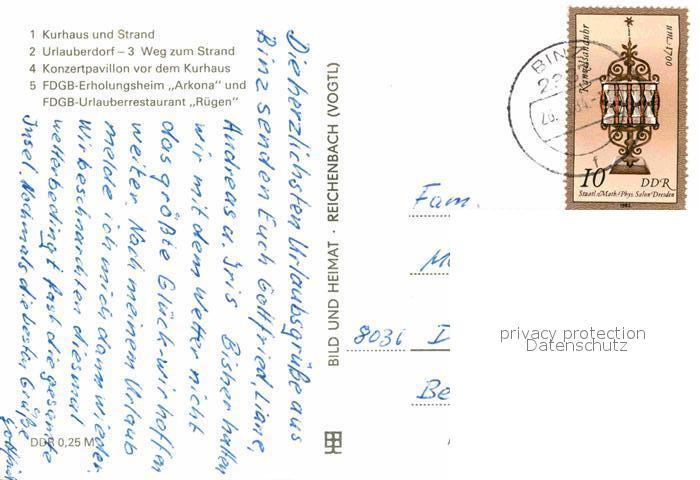 1 Kurhaus und Strand
2 Urlauberdorf – 3 Weg zum Strand
4 Konzertpavillon vor dem Kurhaus
5 FDGB-Erholungsheim „Arkona“ und
FDGB-Urlauberrestaurant „Rügen“
Die herzlichsten Urlaubsgrüße aus
Binz senden Euch Gottfried, Liane,
Andreas u. Iris Bisher hatten
wir mit dem Wetter nicht
das größte Glück – wir hoffen
weiter. Nach meinem Urlaub
melde ich mich dann wieder.
Wir beschnarchten diesmal
wetterbedingt fast die gesamte
Insel. Nochmals die besten Grüße
Gottfried
DDR 0,25 M
BILD UND HEIMAT · REICHENBACH (VOGTL)
Fam.
8036
Be
BINZ
Kanzelsanduhr
um 1700
10 DDR
Staatl. Math.-Phys. Salon Dresden
1983
privacy protection
Datenschutz